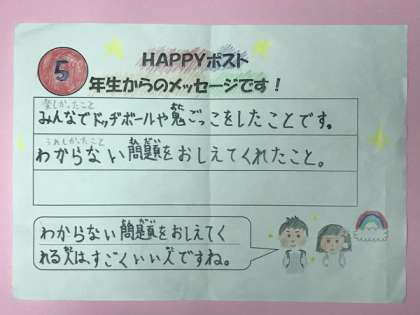 HAPPYポスト
5
年生からのメッセージです！
楽しかったこと
みんなでドッヂボールや鬼ごっこをしたことです。
うれしかったこと
わからない問題をおしえてくれたこと。
わからない問題をおしえてく
れる人は、すごくいい人ですね。